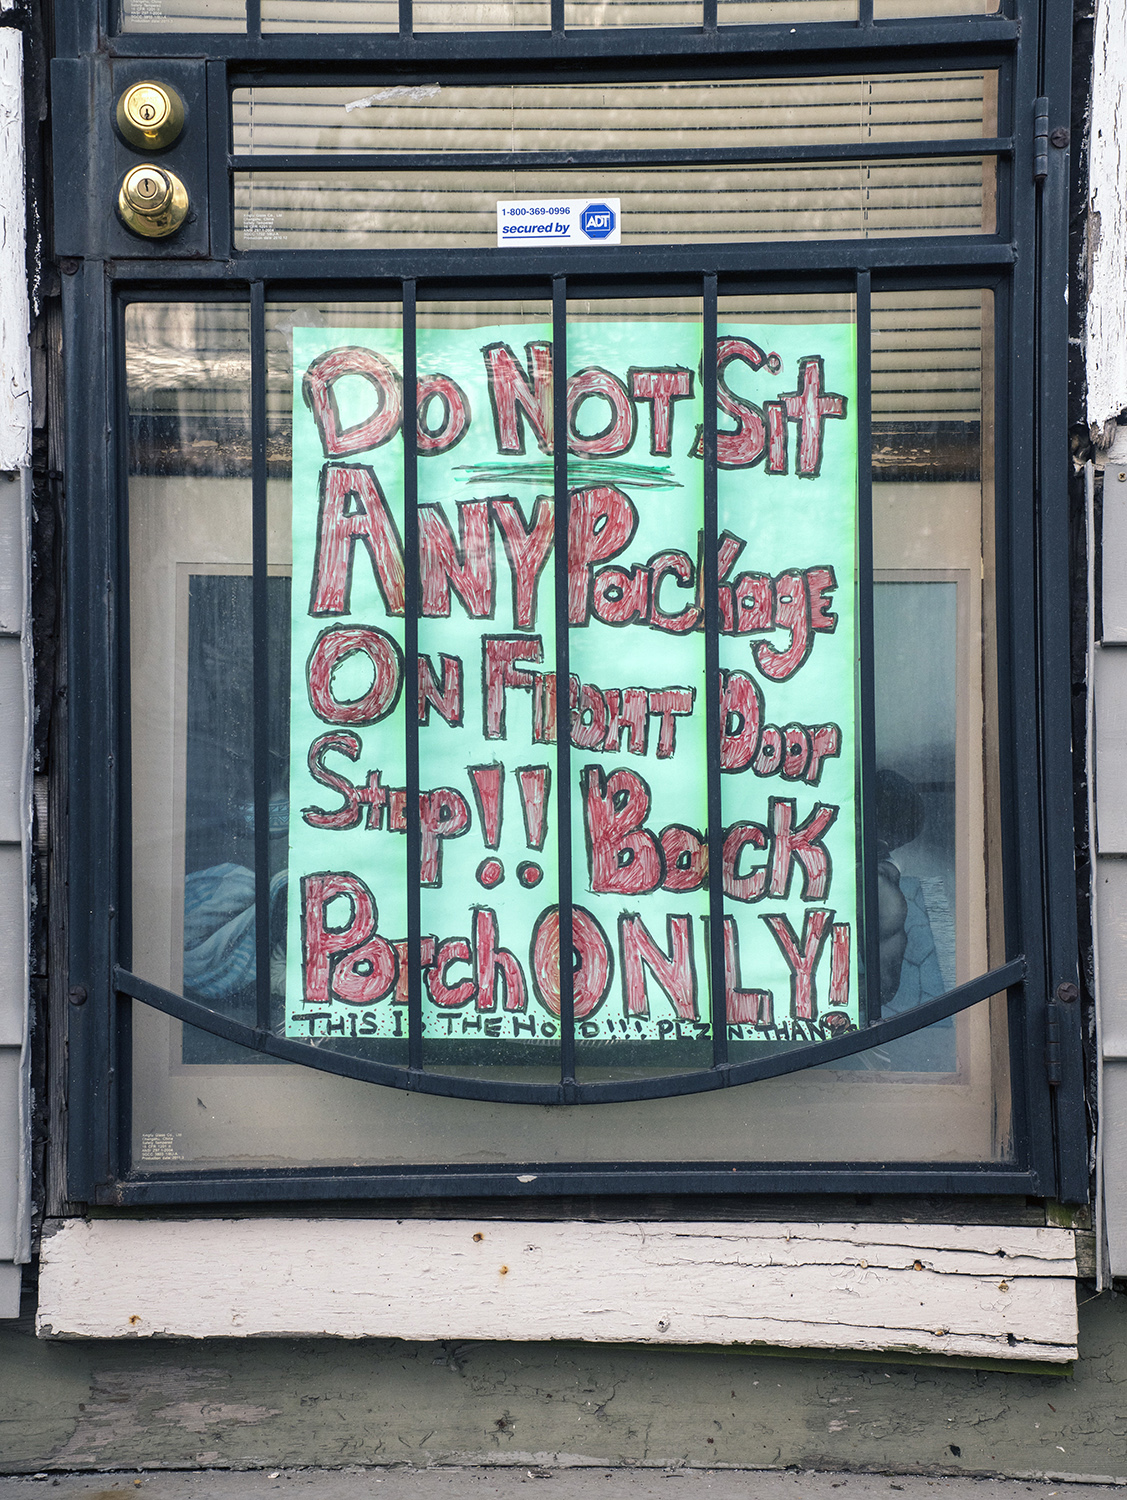 1-800-369-0996
secured by ADT
Do NOT Sit
ANY Package
ON FRONT Door
Step!! Back
Porch ONLY!
THIS IS THE HOOD!!! PLZ